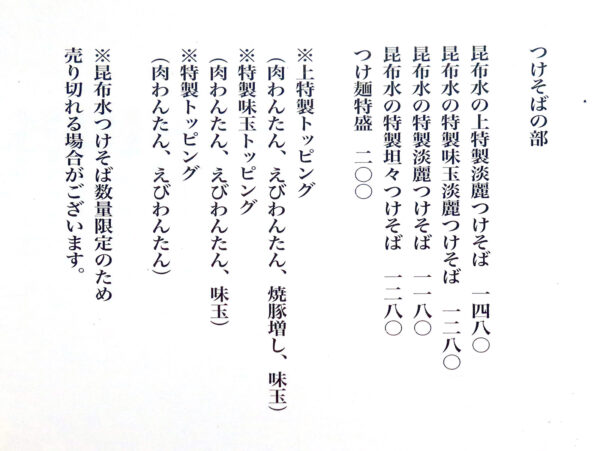 つけそばの部
昆布水の上特製淡麗つけそば 一四八〇
昆布水の特製味玉淡麗つけそば 一二八〇
昆布水の特製淡麗つけそば 一一八〇
昆布水の特製坦々つけそば 一二八〇
つけ麺特盛 二〇〇
※上特製トッピング
(肉わんたん、えびわんたん、焼豚増し、味玉)
※特製味玉トッピング
(肉わんたん、えびわんたん、味玉)
※特製トッピング
(肉わんたん、えびわんたん)
※昆布水つけそば数量限定のため
売り切れる場合がございます。